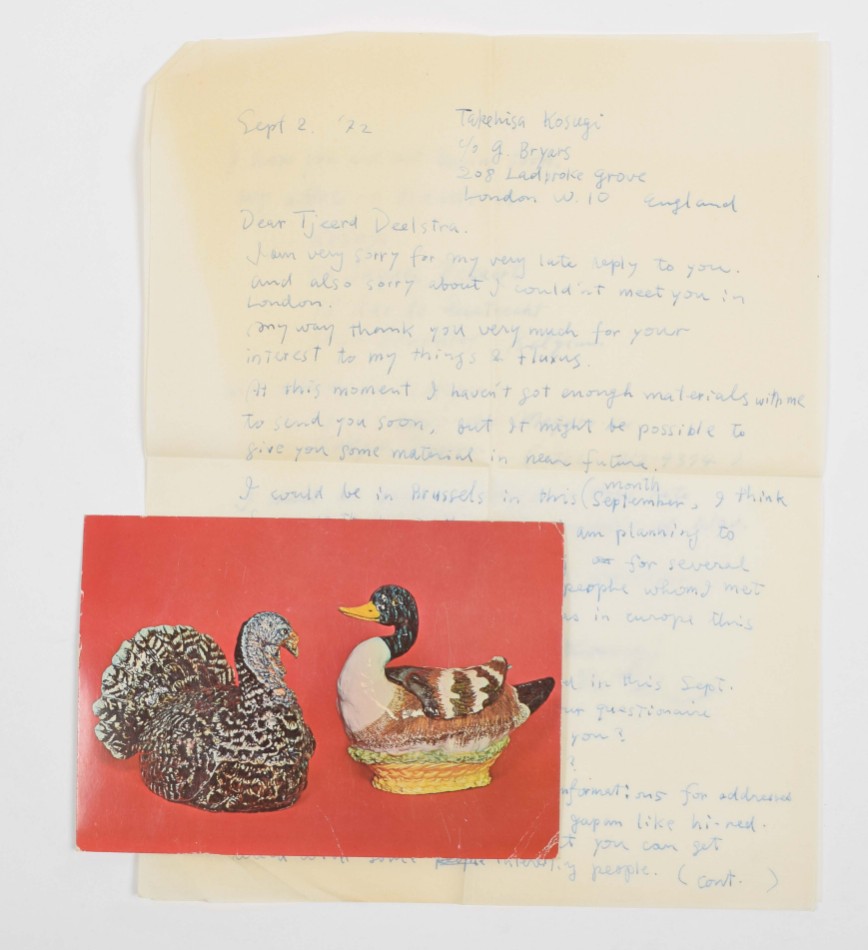 Sept 2. '72
Takehisa Kosugi
c/o G. Bryars
208 Ladbroke Grove
London W.10 England
Dear Tjeerd Deelstra.
I am very sorry for my very late reply to you.
and also sorry about I couldn't meet you in
London.
Any way thank you very much for your
interest to my things & Fluxus.
At this moment I haven't got enough materials with me
to send you soon, but it might be possible to
give you some material in near future.
I could be in Brussels in this (month
September, I think
am planning to
for several
people whom I met
in europe this
in this Sept.
questionaire
you?
?
informations for addresses
Japan like hi-red.
you can get
some people. (cont. )